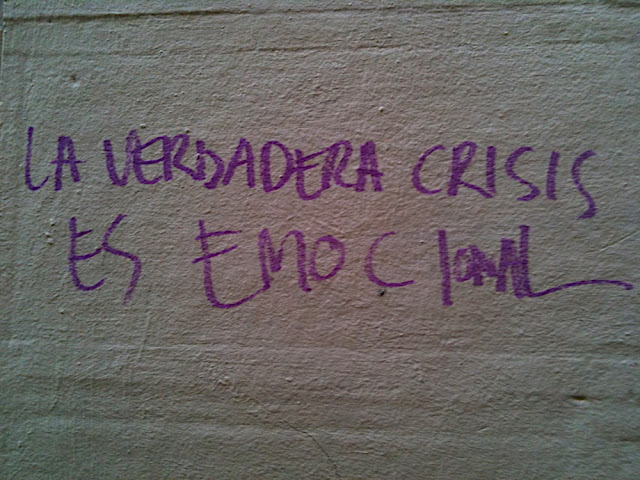 LA VERDADERA CRISIS
ES EMOCIONAL